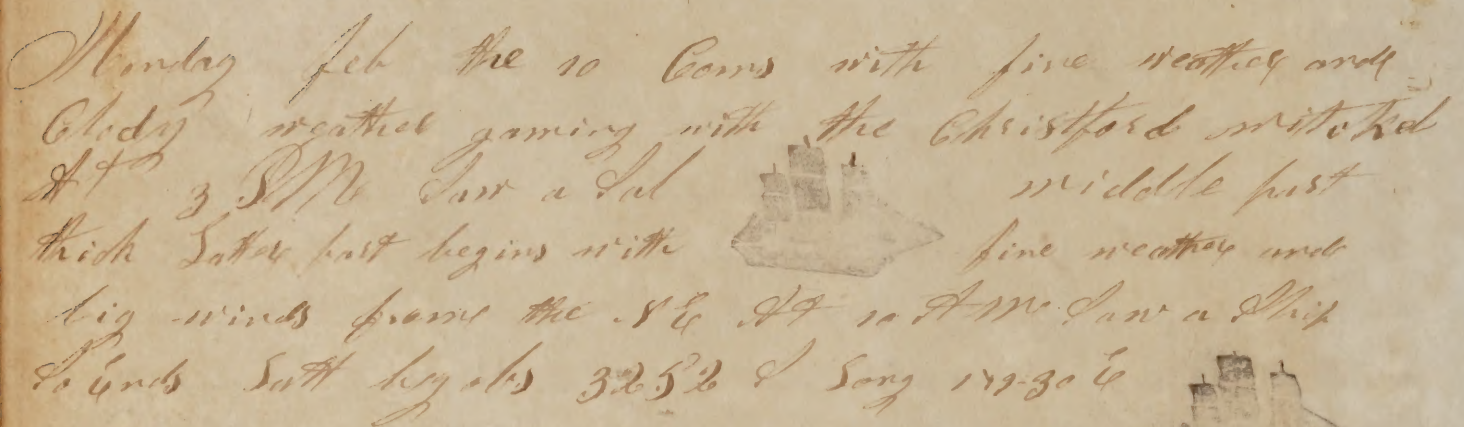 Monday feb the 10 Coms with fine weather and
Clody weather gaming with the Christford mitchel
At 3 PM Saw a Sal middle part
thick Latter part begins with fine weather and
big winds frome the N E At 10 AM Saw a Ship
So Ends Latt by obs 32 52 S Long 179-30 E